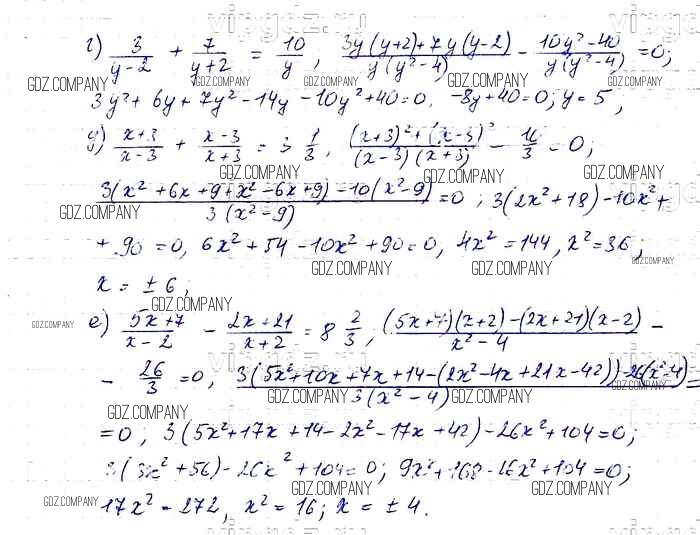 г) 3/(y-2) + 7/(y+2) = 10/y, (3y(y+2)+7y(y-2))/(y(y²-4)) - (10y²-40)/(y(y²-4)) = 0;
3y²+6y+7y²-14y-10y²+40=0, -8y+40=0; y=5,
д) (x+3)/(x-3) + (x-3)/(x+3) = 3 1/3, ((x+3)²+(x-3)²)/((x-3)(x+3)) - 10/3 = 0;
(3(x²+6x+9+x²-6x+9)-10(x²-9))/(3(x²-9)) = 0; 3(2x²+18)-10x²+
+90=0, 6x²+54-10x²+90=0, 4x²=144, x²=36;
x = ±6,
е) (5x+7)/(x-2) - (2x+21)/(x+2) = 8 2/3, ((5x+7)(x+2)-(2x+21)(x-2))/(x²-4) -
- 26/3 = 0, (3(5x²+10x+7x+14-(2x²-4x+21x-42))-26(x²-4))/(3(x²-4)) =
=0; 3(5x²+17x+14-2x²-17x+42)-26x²+104=0;
3(3x²+56)-26x²+104=0; 9x²+168-26x²+104=0;
17x²=272, x²=16; x=±4.
GDZ.COMPANY